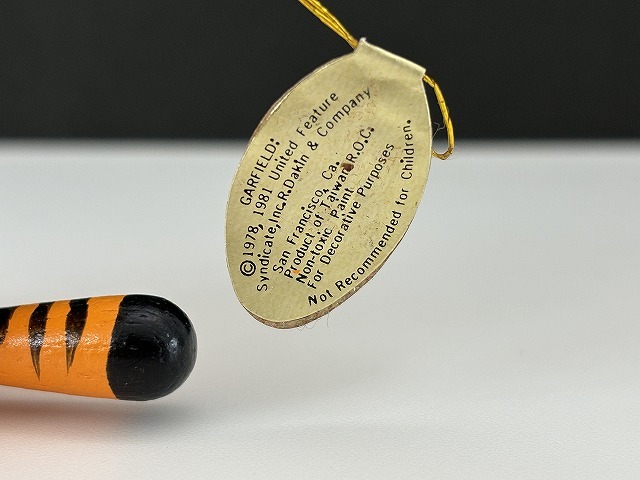 GARFIELD:
©1978, 1981 United Feature
Syndicate,Inc.R.Dakin & Company
San Francisco, Ca.
Product of Taiwan,R.O.C.
Non-toxic Paint
For Decorative Purposes
Not Recommended for Children.